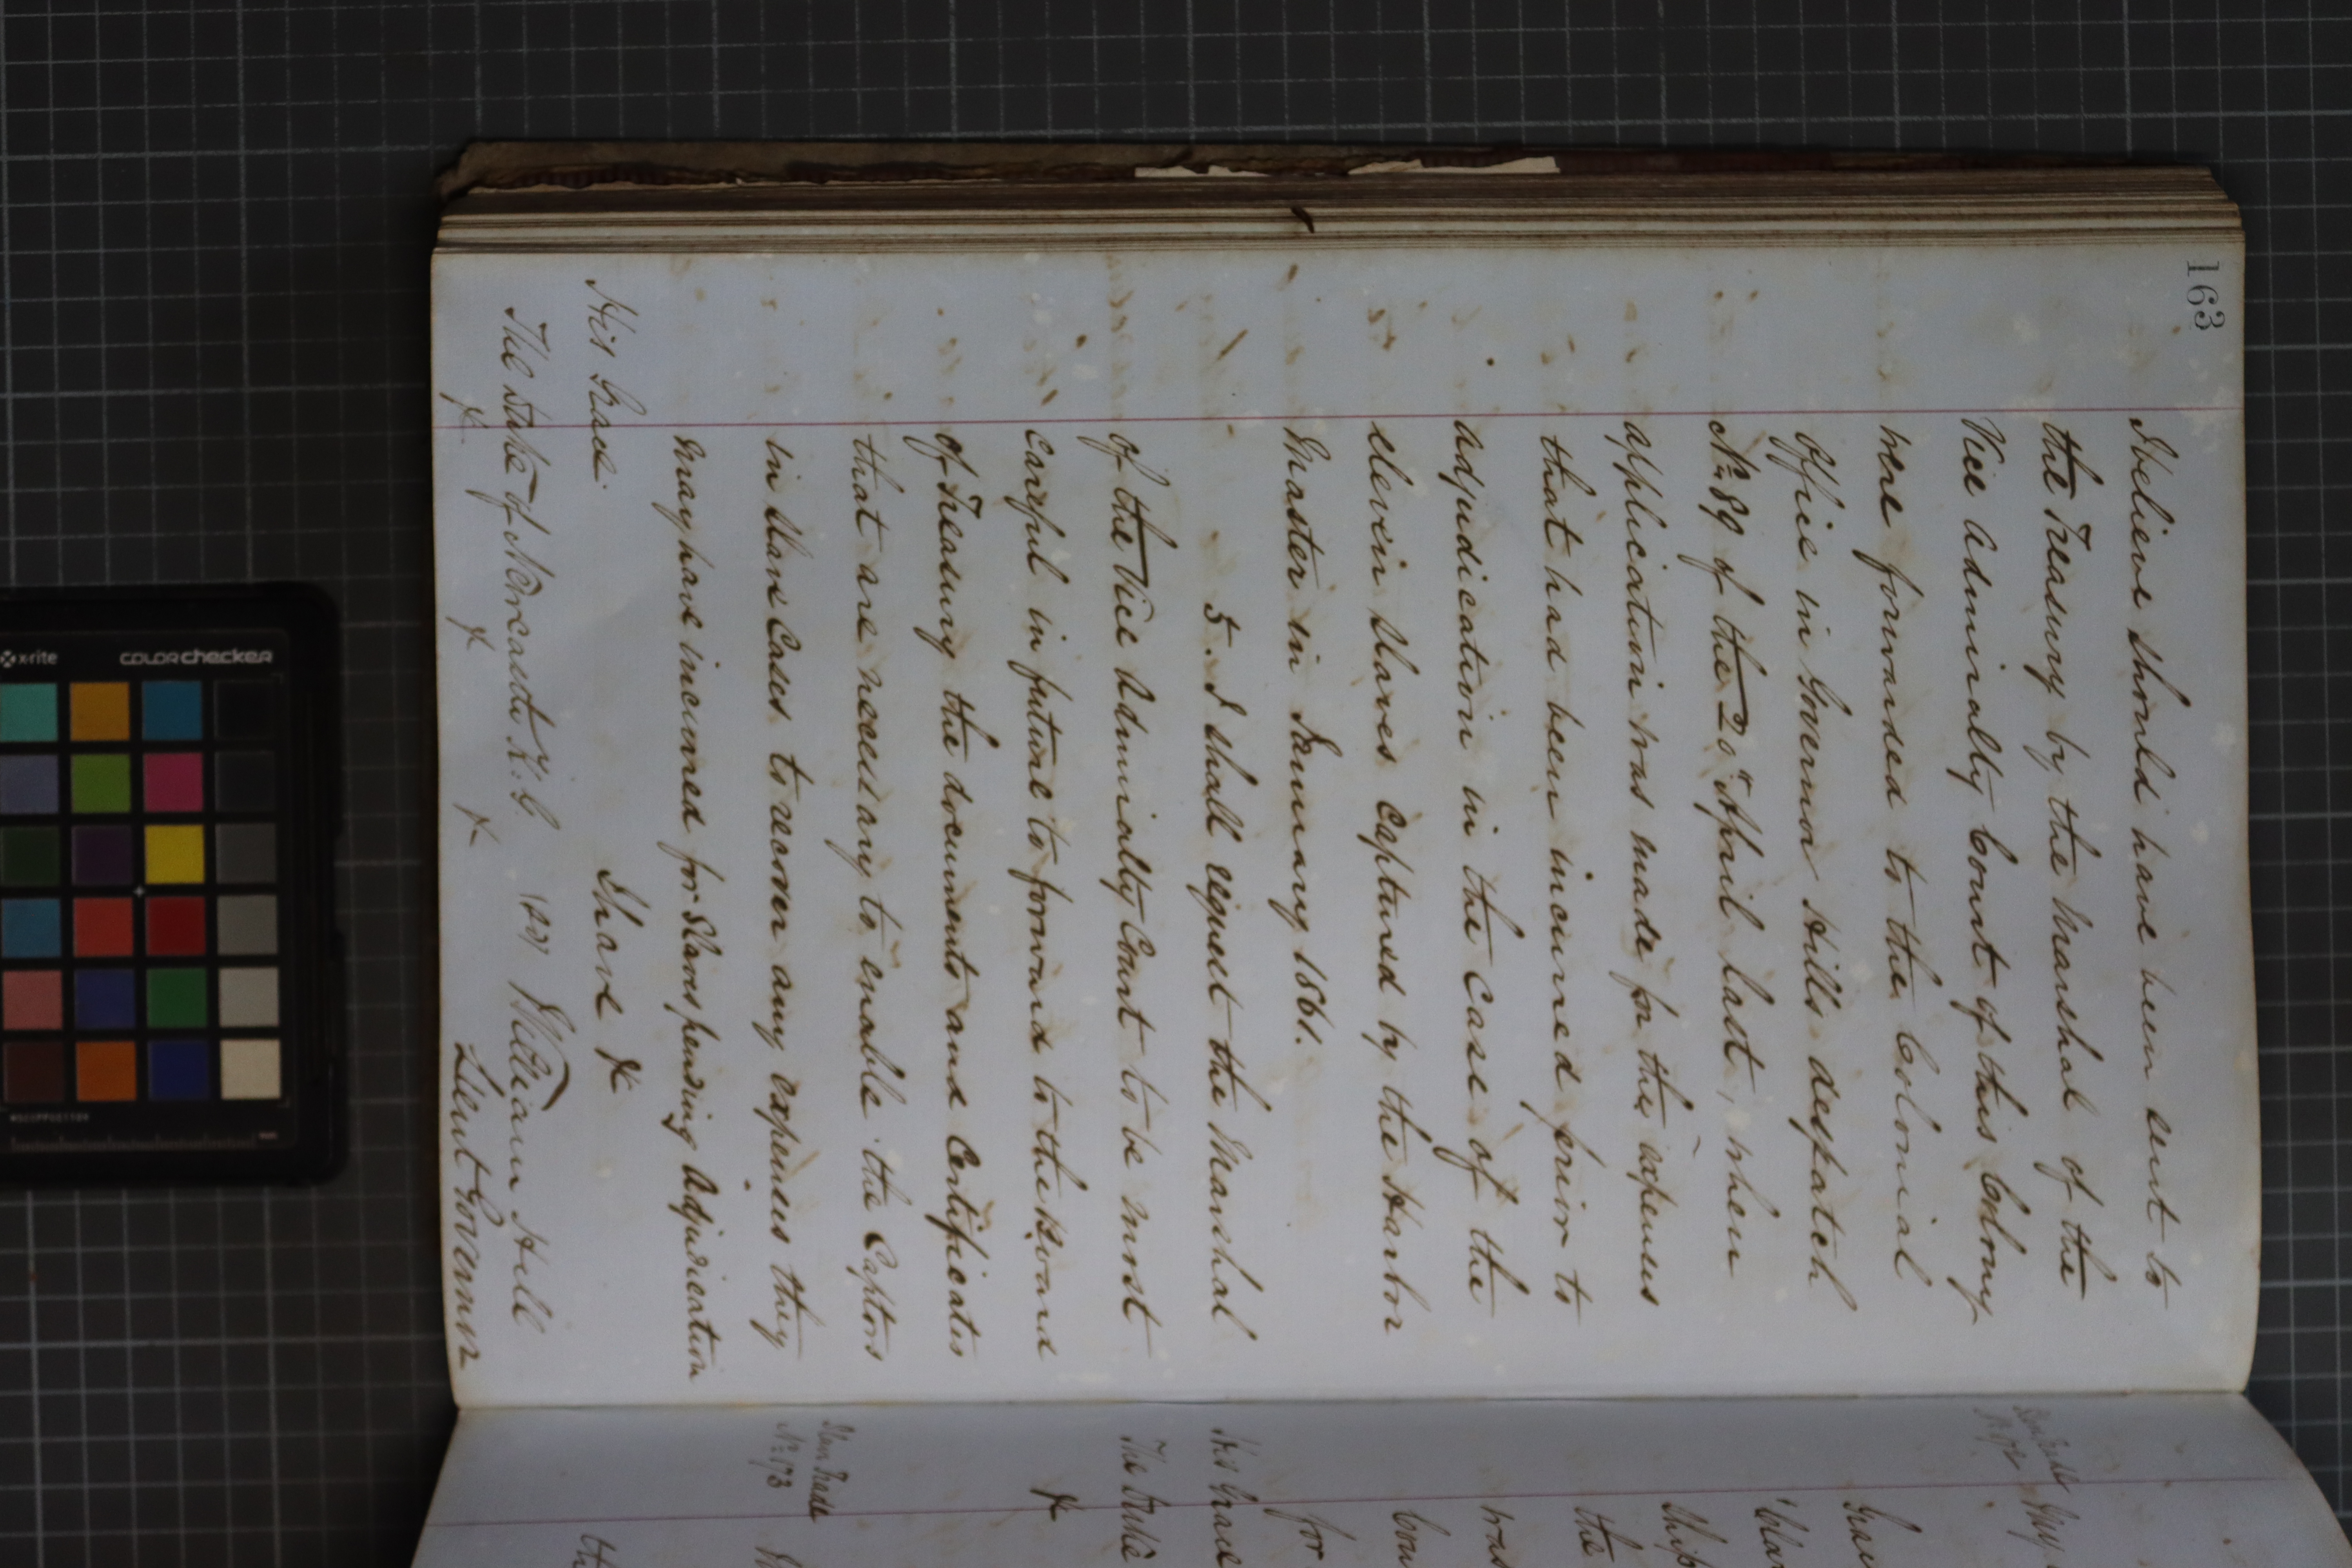 163
I believe should have been sent to
the Treasury by the Marshal of the
Vice Admiralty Court of this Colony
were forwarded to the Colonial
Office in Governor Hills despatch
No. 89 of the 20th April last, when
application was made for the expenses
that had been incurred prior to
adjudication in the Case of the
eleven Slaves Captured by the Harbor
Master in January 1861.
5. I shall request the Marshal
of the Vice Admiralty Court to be most
careful in future to forward to the Board
of Treasury the documents and Certificates
that are necessary to enable the Captors
in Slave Cases to recover any expenses they
may have incurred for Slaves pending Adjudication
I have &c
His Grace
The Duke of Newcastle K.G. (sd) William Hill
&c &c &c Lieut Governor
Slave Trade
No. 172
Grace
Ship
the
was
for
His Grace
The Duke
&c
Slave Trade
No. 173